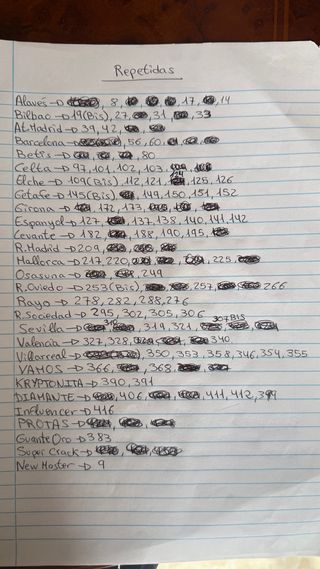 Repetidas
Alavés → 8, 17, 14
Bilbao → 19(Bis), 27, 31, 33
At.Madrid → 39, 42,
Barcelona → 56, 60,
Betis → 80
Celta → 97, 101, 102, 103,
Elche → 109(Bis), 112, 121, 125, 126
Getafe → 145(Bis), 149, 150, 151, 152
Girona → 172, 173,
Espanyol → 127, 137, 138, 140, 141, 142
Levante → 182, 188, 190, 195,
R.Madrid → 209,
Mallorca → 217, 220, 225,
Osasuna → 249
R.Oviedo → 253(Bis), 257, 266
Rayo → 278, 282, 288, 276
R.Sociedad → 295, 302, 305, 306
307BIS
Sevilla → 319, 321
Valencia → 327, 328, 340
Villarreal → 350, 353, 358, 346, 354, 355
VAMOS → 366, 368
KRYPTONITA → 390, 391
DIAMANTE → 406, 411, 412, 399
Influencer → 416
PROTAS →
Guante Oro → 383
Super Crack →
New Master → 9